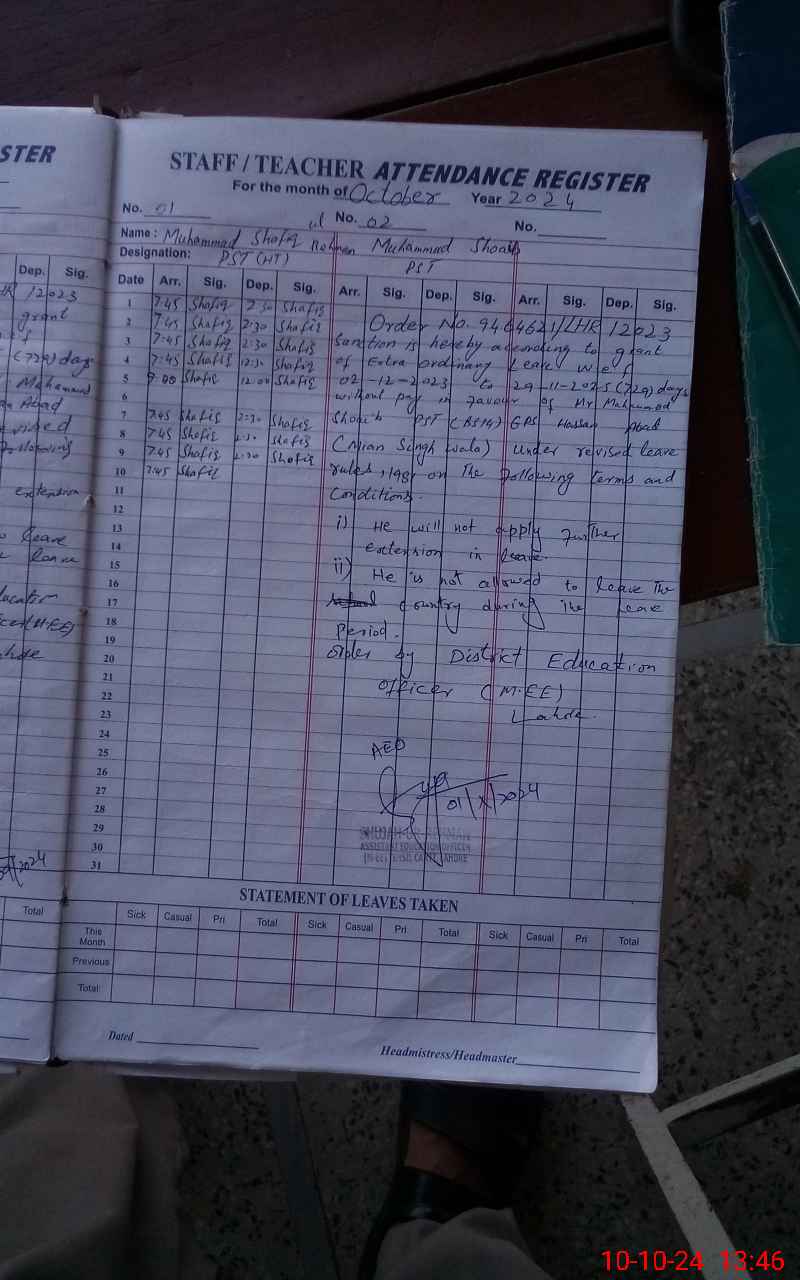 STER
Dep. Sig.
12023
grant
(729) days
Abad
extension
leave
2024
Total
STAFF / TEACHER ATTENDANCE REGISTER
For the month of October Year 2024
No. 01 No. 02 No.
Name : Muhammad Shafiq Muhammad Shoaib
Designation: PST (HT) PST
Date Arr. Sig. Dep. Sig. Arr. Sig. Dep. Sig. Arr. Sig. Dep. Sig.
1 7:45 Shafiq 2:30 Shafiq
2 7:45 Shafiq 2:30 Shafiq
3 7:45 Shafiq 2:30 Shafiq
4 7:45 Shafiq 12:30 Shafiq
5 9:00 Shafiq 12:00 Shafiq
6
7 7:45 Shafiq 2:30 Shafiq
8 7:45 Shafiq 2:30 Shafiq
9 7:45 Shafiq 2:30 Shafiq
10 7:45 Shafiq
11
12
13
14
15
16
17
18
19
20
21
22
23
24
25
26
27
28
29
30
31
Order No. 9464621/LHR 12023
Sanction is hereby according to grant
of Extra ordinary Leave w.e.f
02-12-2023 to 29-11-2025 (729) days
without pay in favour of Mr Muhammad
Shoaib PST (BS14) GPS Hassan Abad
(Mian Singh wala) under revised leave
rules, 1981 on The following terms and
Conditions.
i) He will not apply further
extension in leave.
ii) He is not allowed to leave The
country during The leave
Period.
order by District Education
officer (M.EE)
Lahore.
AEO
01/X/2024
ASSISTANT EDUCATION OFFICER
LAHORE
STATEMENT OF LEAVES TAKEN
Sick Casual Pri Total Sick Casual Pri Total Sick Casual Pri Total
This Month
Previous
Total
Dated
Headmistress/Headmaster
10-10-24 13:46